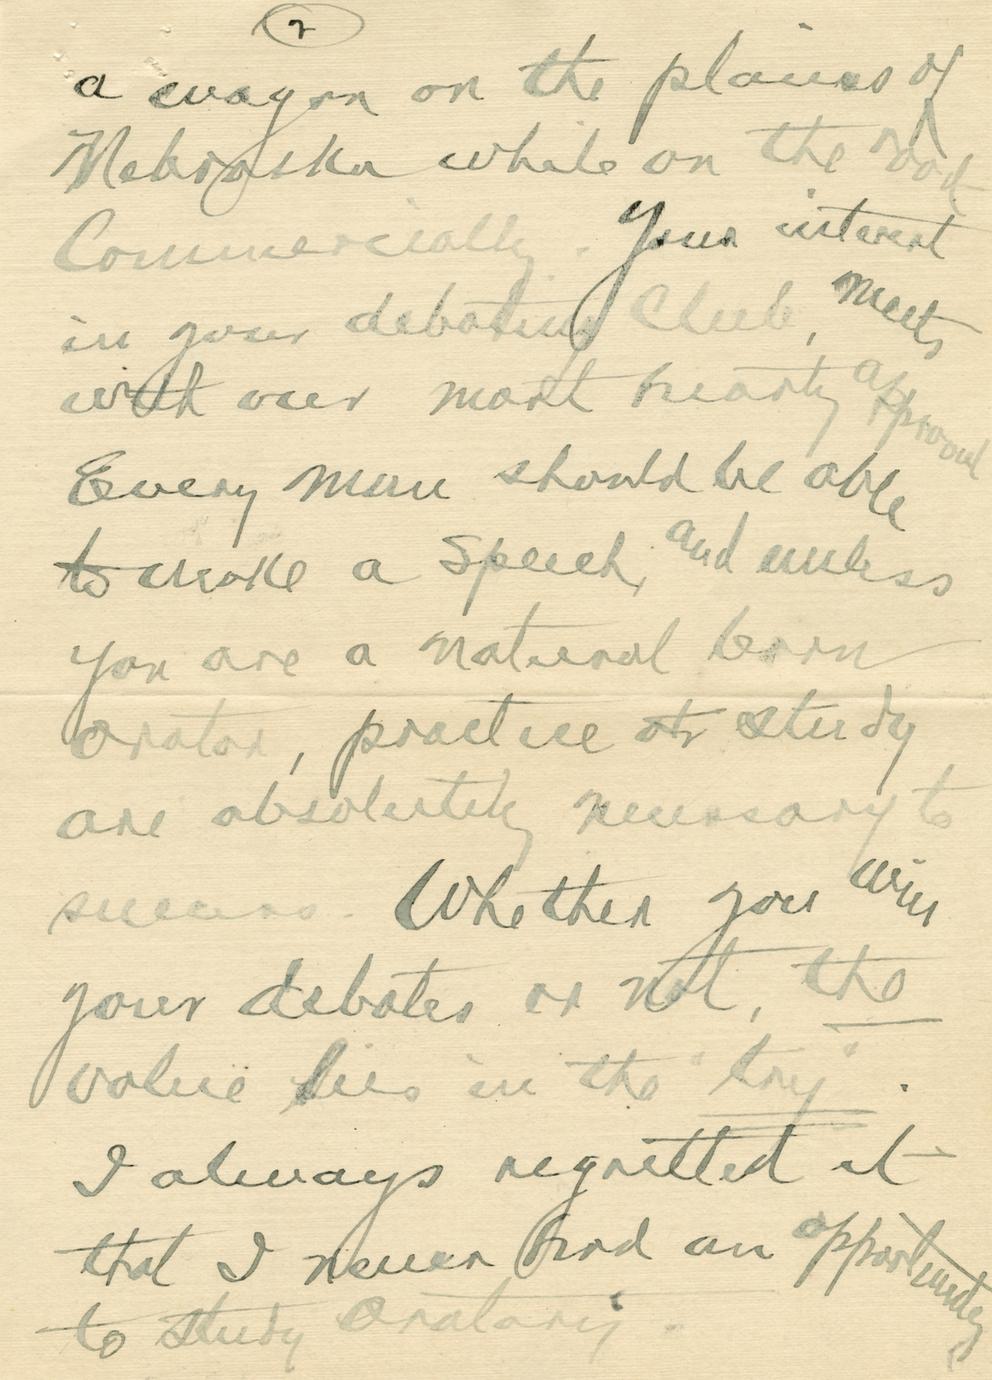 2
a wagon on the plains of
Nebraska while on the road
Commercially. Your interest
in your debating Club, meets
with our most hearty approval
Every man should be able
to make a speech, and unless
you are a natural born
orator, practice & study
are absolutely necessary to
success. Whether you win
your debates or not, the
value lies in the "try".
I always regretted it
that I never had an opportunity
to study Oratory.